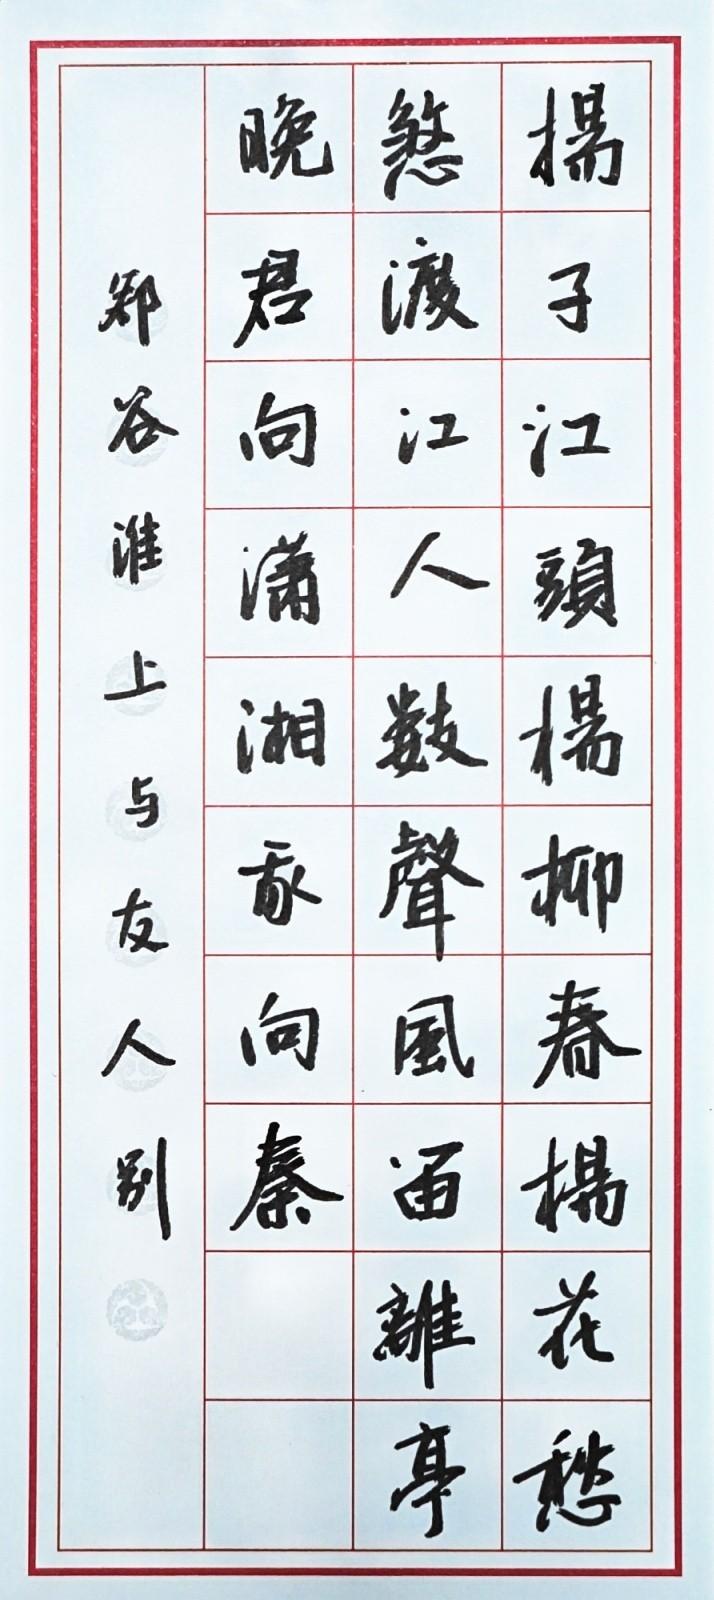 揚子江頭楊柳春楊花愁
煞渡江人數聲風笛離亭
晚君向瀟湘我向秦
郑谷淮上与友人别